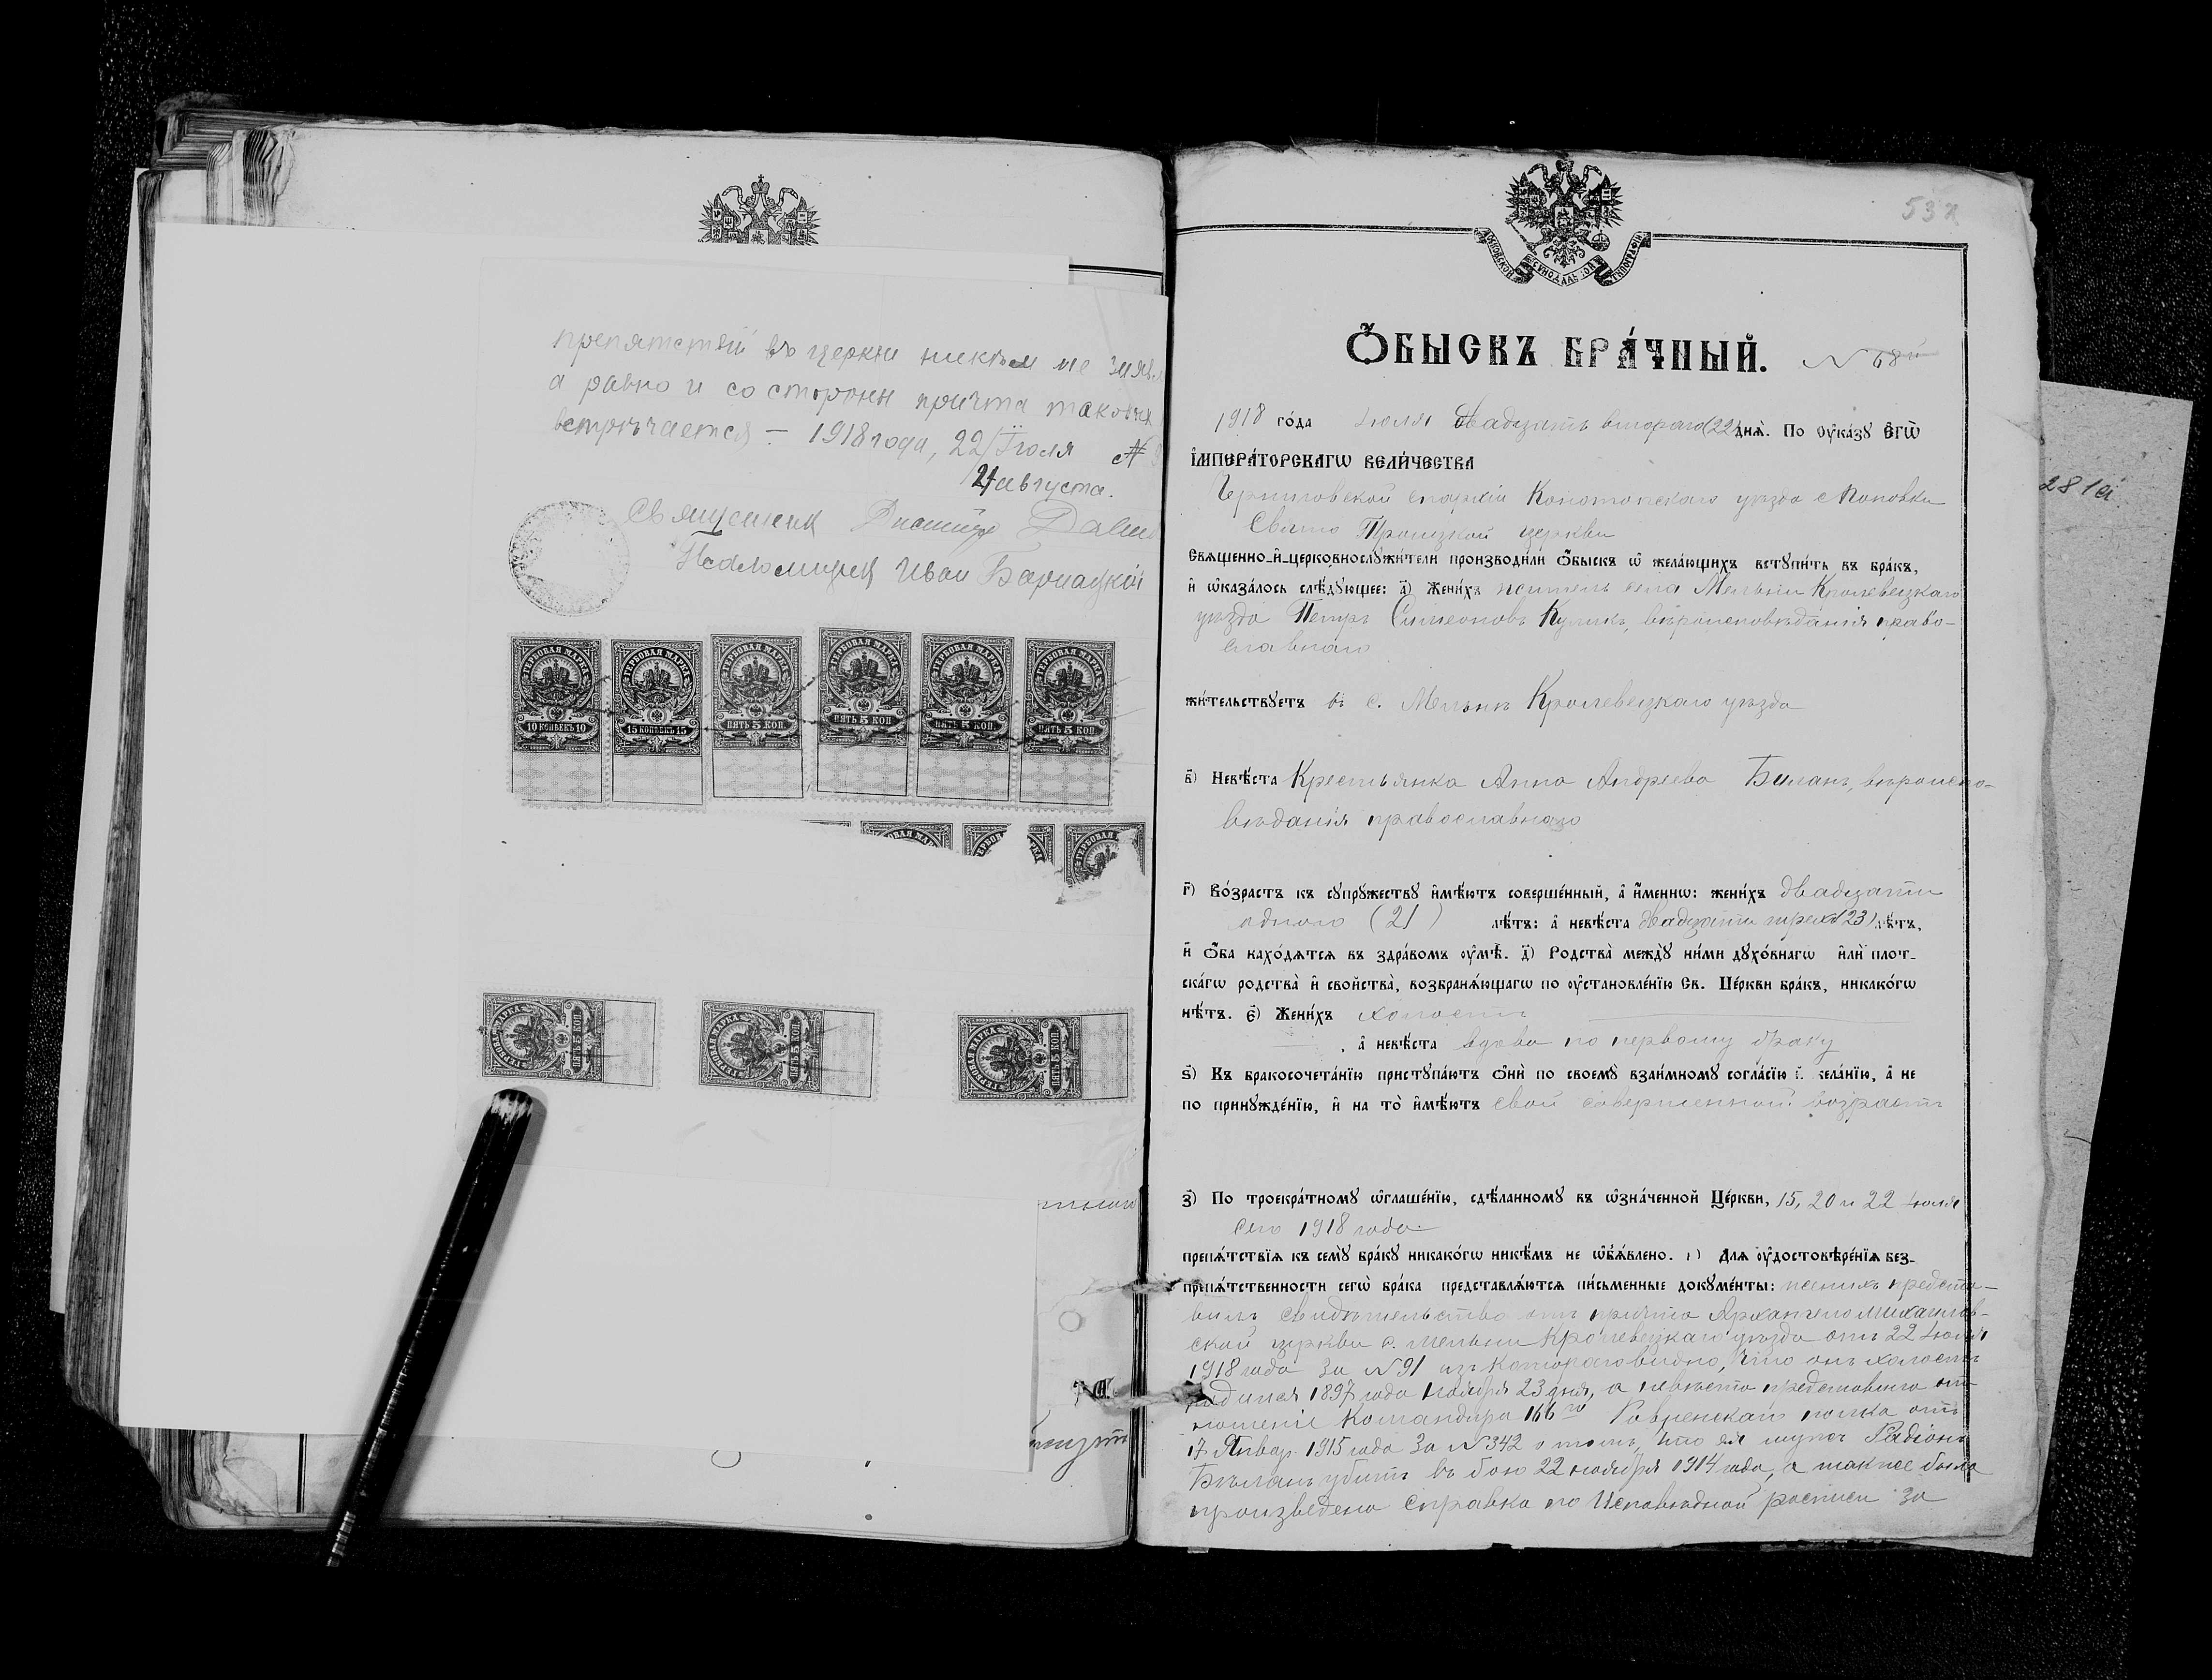 препятствій въ церкви никѣмъ не заяв
а равно и со стороны причта таковых
встрѣчается — 1918 года, 22/Іюля №
4 августа.
Священник Димитр
Псаломщик Иван
ГЕРБОВАЯ МАРКА 10 КОПѢЕКЪ 10
ГЕРБОВАЯ МАРКА 15 КОПѢЕКЪ 15
ГЕРБОВАЯ МАРКА ПЯТЬ 5 КОП
ГЕРБОВАЯ МАРКА ПЯТЬ 5 КОП
ГЕРБОВАЯ МАРКА ПЯТЬ 5 КОП
ГЕРБОВАЯ МАРКА ПЯТЬ 5 КОП
ГЕРБОВАЯ МАРКА ПЯТЬ 5 КОП
ГЕРБОВАЯ МАРКА ПЯТЬ 5 КОП
ГЕРБОВАЯ МАРКА ПЯТЬ 5 КОП
53
МОСКОВСКОЙ СѴНОДАЛЬНОЙ ТИПОГРАФІИ
Ѻ҆БЫСКЪ БРА́ЧНЫЙ. N 68й
1918 го́да Іюля двадцать втораго (22) днѧ̀. По ᲂу҆ка́зꙋ Є҆гѡ̀
І҆мпера́торскагѡ вели́чества
Черниговской епархіи Конотопскаго уѣзда с Поповки
Свято Троицкой церкви
Свѧще́нно-и҆-церковнослꙋжи́тели производи́ли ѻ҆́быскъ ѡ҆ жела́ющихъ встꙋпи́ть въ бра́къ,
и҆ ѡ҆каза́лось слѣ́дꙋющее: а҃) Жени́хъ житель села Мельни Кролевецкаго
уѣзда Петръ Симеоновъ Куликъ, вѣроисповѣданія право-
славнаго
жи́тельствꙋетъ въ с. Мельнѣ Кролевецкаго уѣзда
в҃) Невѣ́ста Крестьянка Анна Андреева Биланъ, вѣроиспо-
вѣданія православнаго
г҃) Во́зрастъ къ сꙋпрꙋ́жествꙋ и҆мѣ́ютъ соверше́нный, а҆ и҆́меннѡ: жени́хъ двадцати
одного (21) лѣ́тъ: а҆ невѣ́ста двадцати трехъ (23) лѣ́тъ,
и҆ ѻ҆́ба нахо́дѧтсѧ въ здра́вомъ ᲂу҆мѣ̀. д҃) Родства̀ междꙋ̀ ни́ми дꙋхо́внагѡ и҆лѝ плот-
ска́гѡ родства̀ и҆ свойства̀, возбранѧ́ющагѡ по ᲂу҆становле́нїю Св. Це́ркви бра́къ, никако́гѡ
нѣ́тъ. є҃) Жени́хъ холостъ
, а҆ невѣ́ста вдова по первому браку
ѕ҃) Къ бракосочета́нїю пристꙋпа́ютъ ѻ҆нѝ по своемꙋ̀ взаи́мномꙋ согла́сїю и҆ жела́нїю, а҆ не
по принꙋжде́нїю, и҆ на то̀ и҆мѣ́ютъ свой совершенный возрастъ
з҃) По троекра́тномꙋ ѡ҆глаше́нїю, сдѣ́ланномꙋ въ ѡ҆зна́ченной Це́ркви, 15, 20 и 22 Іюля
сего 1918 года.
препѧ́тствїѧ къ семꙋ̀ бра́кꙋ никако́гѡ никѣ́мъ не ѡ҆б̾ѧ́влено. и҃) Длѧ ᲂу҆достовѣре́нїѧ без-
препѧ́тственности сегѡ̀ бра́ка представлѧ́ютсѧ пи́сьменные докꙋме́нты: женихъ предста-
вилъ свидѣтельство отъ причта Архангело Михайлов-
ской церкви с. Мельни Кролевецкаго уѣзда отъ 22 Іюля
1918 года за N 91 изъ котораго видно, что онъ холостъ
родился 1897 года ноября 23 дня, а невѣста представила от-
ношеніе Командира 166го Ровненскаго полка отъ
17 Январ. 1915 года за N 342 о томъ, что ея мужъ Радіонъ
Бѣланъ убитъ въ бою 22 ноября 1914 года, а также была
произведена справка по Исповѣдной росписи за
281